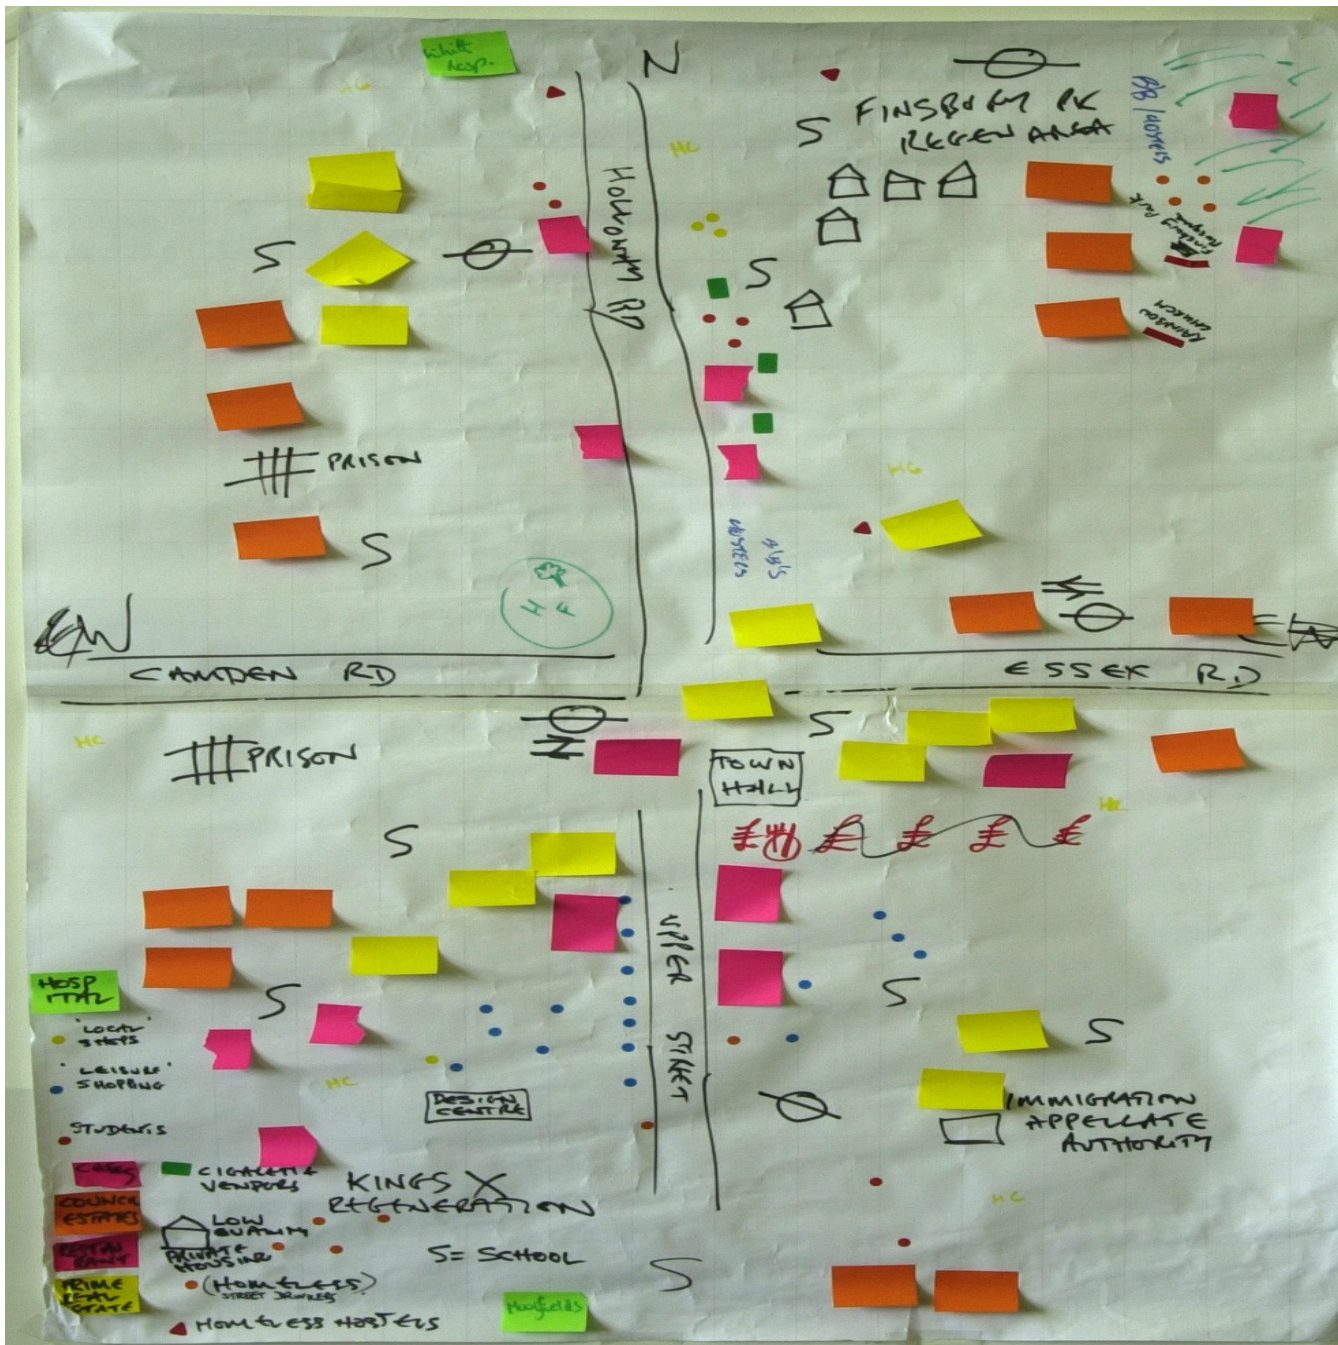 Whitt
hosp.
N
HC
HC
FINSBURY PK
REGEN AREA
S
B/B/HOSTELS
HOLLOWAY RD
Finsbury Park
Mosque
S
S
RAINBOW
CHURCH
PRISON
HC
S
HOSTELS
B/B'S
H F
W
CAMDEN RD
ESSEX RD
HC
PRISON
S
TOWN
HALL
HC
£ £ £ £ £
S
UPPER STREET
HOSP
ITAL
S
S
'LOCAL'
SHOPS
S
'LEISURE'
SHOPPING
HC
DESIGN
CENTRE
IMMIGRATION
APPELLATE
AUTHORITY
STUDENTS
CAFES
CIGARETTE
VENDORS
KINGS X
REGENERATION
HC
COUNCIL
ESTATES
LOW
QUALITY
PRIVATE
HOUSING
RESTAU
RANT
S = SCHOOL
S
PRIME
REAL
ESTATE
(HOMELESS)
STREET DRINKERS
Moorfields
HOMELESS HOSTELS